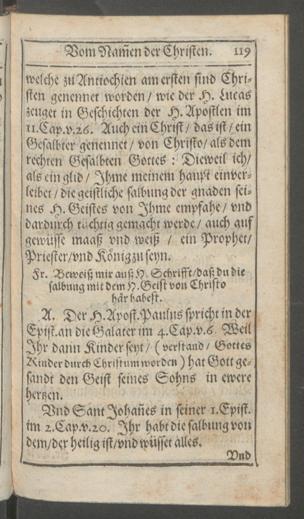 Vom Nam̃en der Christen. 119
welche zu Antiochien am ersten sind Chri-
sten genennet worden / wie der H. Lucas
zeuget in Geschichten der H. Apostlen im
11. Cap. v. 26. Auch ein Christ / das ist / ein
Gesalbter genennet / von Christo / als dem
rechten Gesalbten Gottes : Dieweil ich /
als ein glid / Ihme meinem haupt einver-
leibet / die geistliche salbung der gnaden sei-
nes H. Geistes von Ihme empfahe / vnd
dardurch tüchtig gemacht werde / auch auf
gewüsse maaß vnd weiß / ein Prophet /
Priester / vnd König zu seyn.
Fr. Beweiß mir auß H. Schrifft / daß du die
salbung mit dem H. Geist von Christo
här habest.
A. Der H. Apost. Paulus spricht in der
Epist. an die Galater im 4. Cap. v. 6. Weil
Ihr dann Kinder seyt / ( verstand / Gottes
Kinder durch Christum worden ) hat Gott ge-
sandt den Geist seines Sohns in ewere
hertzen.
Vnd Sant Johañes in seiner 1. Epist.
im 2. Cap. v. 20. Ihr habt die salbung von
dem / der heilig ist / vnd wüsset alles.
Vnd